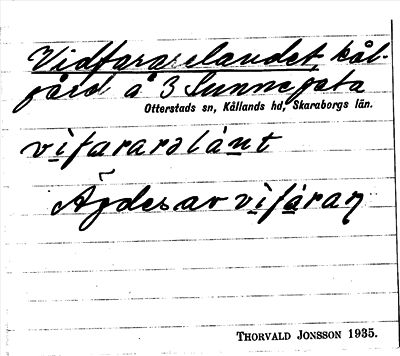 Vidfararelandet, kål-
gård å 3 Sunnegata
Otterstads sn, Kållands hd, Skaraborgs län.
vifararəlánt
Ägdes av vifáraŋ
THORVALD JONSSON 1935.